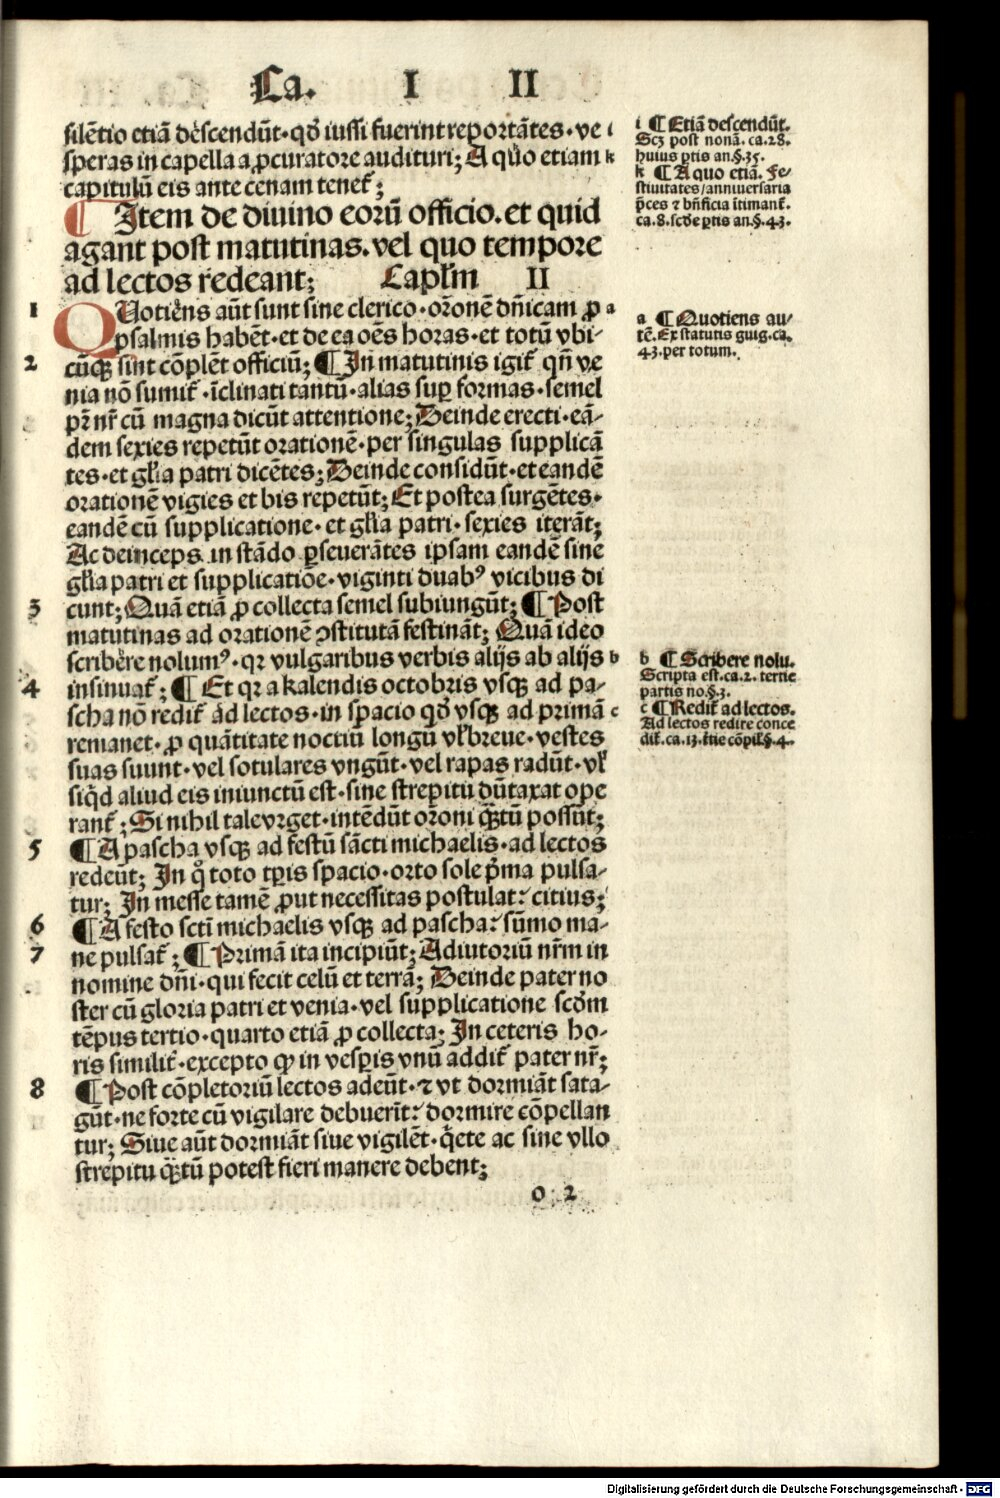 Ca. I II
silētio etiā descendūt·qđ iussi fuerint reportātes·ve i
speras in capella a ꝓcuratore audituri; A quo etiam k
capitulū eis ante cenam tenet᷑;
¶ Item de diuino eorū officio.et quid
agant post matutinas.vel quo tempore
ad lectos redeant; Caplm̄ II
1 QUotiens aūt sunt sine clerico·orōnē dn̄icam ꝓ a
psalmis habēt·et de ea oēs horas·et totū vbi-
2 cūqꝫ sint cōplēt officiū; ¶ In matutinis igit᷑ qn̄ ve
nia nō sumit᷑·īclinati tantū·alias suꝑ formas·semel
pr̄ nr̄ cū magna dicūt attentione; Deinde erecti·eā-
dem sexies repetūt orationē·per singulas supplicā
tes·et gl̄ia patri dicētes; Deinde considūt·et eandē
orationē vigies et bis repetūt; Et postea surgētes·
eandē cū supplicatione·et gl̄ia patri·sexies iterāt;
Ac deinceps in stādo ꝑseuerātes ipsam eandē sine
gl̄ia patri et supplicatiōe·viginti duabꝰ vicibus di
3 cunt; Quā etiā ꝓ collecta semel subiungūt; ¶ Post
matutinas ad orationē ꝯstitutā festināt; Quā ideo
scribere nolumꝰ·qꝛ vulgaribus verbis alijs ab alijs b
4 insinuat᷑; ¶ Et qꝛ a kalendis octobris vsqꝫ ad pa-
scha nō redit᷑ ad lectos·in spacio qđ vsqꝫ ad primā c
remanet·ꝓ quātitate noctiū longū vl̄ breue·vestes
suas suunt·vel sotulares vngūt·vel rapas radūt·vl̄
siq̄d aliud eis iniunctū est·sine strepitu dūtaxat ope
rant᷑; Si nihil tale vrget·intēdūt orōni q̄ꝫtū possūt;
5 ¶ A pascha vsqꝫ ad festū sācti michaelis·ad lectos
redeūt; In qͦ toto tꝑis spacio·orto sole pͥma pulsa-
tur; In messe tamē ꝓut necessitas postulat: citius;
6 ¶ A festo scti michaelis vsqꝫ ad pascha: sūmo ma-
7 ne pulsat᷑; ¶ Primā ita incipiūt; Adiutoriū nr̄m in
nomine dn̄i·qui fecit celū et terrā; Deinde pater no
ster cū gloria patri et venia·vel supplicatione scd̄m
tēpus tertio·quarto etiā ꝓ collecta; In ceteris ho-
ris similit᷑·excepto ꝙ in vesꝑis vnū addit᷑ pater nr̄;
8 ¶ Post cōpletoriū lectos adeūt·⁊ vt dormiāt sata-
gūt·ne forte cū vigilare debuerīt: dormire cōpellan
tur; Siue aūt dormiāt siue vigilēt·q̄ete ac sine vllo
strepitu q̄ꝫtū potest fieri manere debent;
o 2
i ¶ Etiā descendūt.
Scꝫ post nonā. ca.28.
huius ꝑtis an.§.35.
k ¶ A quo etiā. Fe-
stiuitates/anniuersaria
p̄ces ⁊ bn̄ficia ītimant᷑.
ca.8.scd̄e ꝑtis an.§.43.
a ¶ Quotiens au-
tē. Ex statutis guig. ca.
43. per totum.
b ¶ Scribere nolu.
Scripta est. ca.2. tertie
partis no.§.3.
c ¶ Redit᷑ ad lectos.
Ad lectos redire conce
dit᷑. ca.13. t̄tie cōpil̄.§.4.
Digitalisierung gefördert durch die Deutsche Forschungsgemeinschaft · DFG